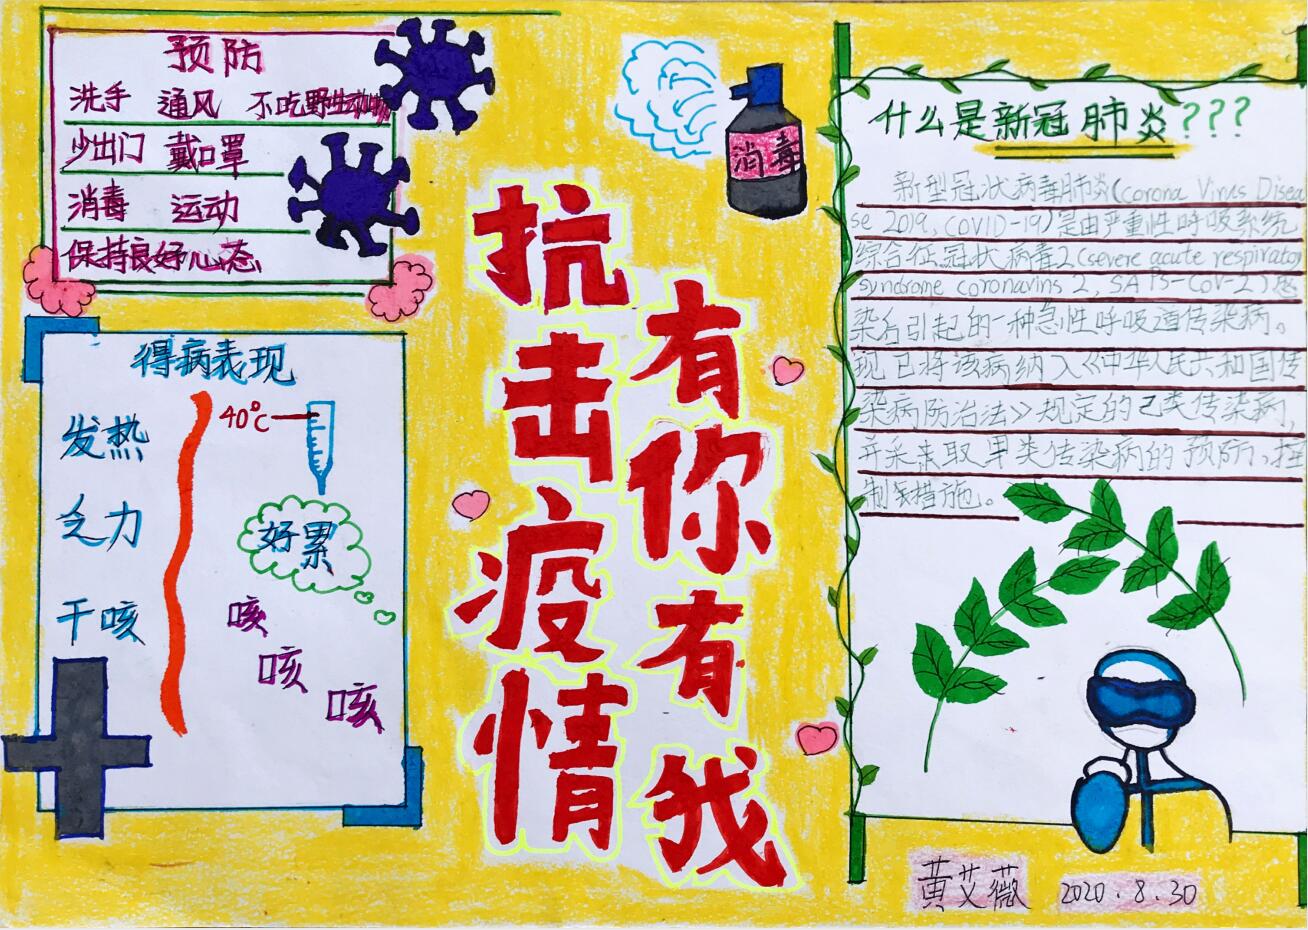 预防
洗手 通风 不吃野生动物
少出门 戴口罩
消毒 运动
保持良好心态
得病表现
发热
40℃
乏力
好累
干咳
咳
咳
咳
抗击疫情
有你有我
消毒
什么是新冠肺炎???
新型冠状病毒肺炎(corona Virus Disea
se 2019, COVID-19)是由严重性呼吸系统
综合征冠状病毒2(severe acute respirato
syndrome coronavirus 2, SARS-CoV-2)感
染后引起的一种急性呼吸道传染病。
现已将该病纳入《中华人民共和国传
染病防治法》规定的乙类传染病,
并采取甲类传染病的预防、控
制措施。
黄艾薇 2020.8.30